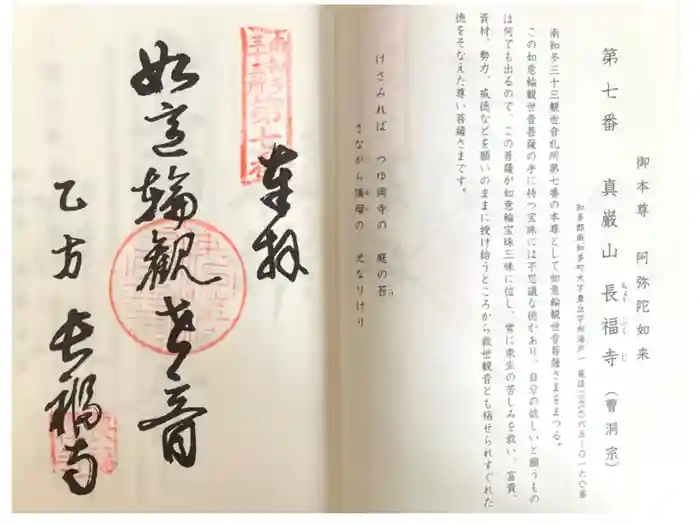 第七番 真厳山 長福寺(曹洞宗)
ちょう ふく じ
御本尊 阿弥陀如来
知多郡南知多町大字豊丘字
南知多三十三観世音札所第七番の本尊として如意輪観世音菩薩さまをまつる。
この如意輪観世音菩薩の手に持つ宝珠には不思議な徳があり、自分の欲しいと願うもの
は何でも出るので、この菩薩が如意輪宝珠三昧に位し、常に衆生の苦しみを救い、富貴、
資材、勢力、威徳などを願いのままに授け給うところから救世観音とも称せられすぐれた
徳をそなえた尊い菩薩さまです。
けさみれば つゆ岡寺の 庭の苔
さながら瑠璃の 光なりけり
奉拝
第七
如意輪観世音
乙方 長福寺